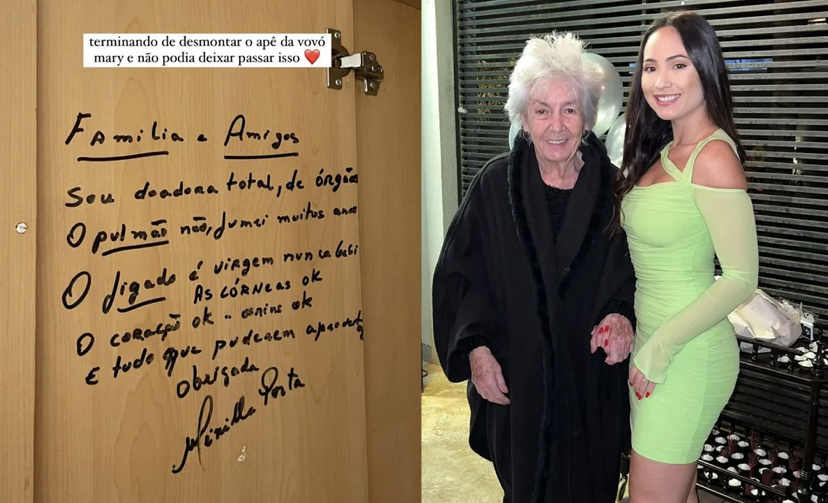 terminando de desmontar o apê da vovó
mary e não podia deixar passar isso ❤️
Família e Amigos
Sou doadora total, de órgãos
O pulmão não, fumei muitos anos
O fígado é virgem nunca bebi
As córneas ok
O coração ok -
E tudo que puderem aproveitar
Obrigada
Porta